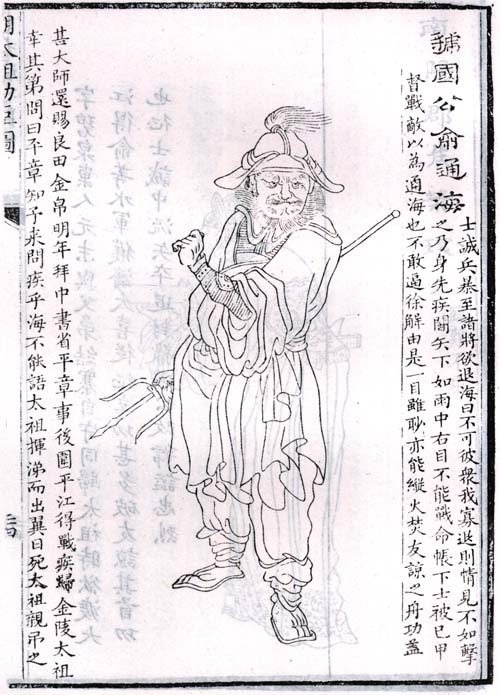 虢國公俞通海
士誠兵暴至諸將欲退海曰不可彼衆我寡退則情見不如擊
之乃身先疾鬭矢下如雨中右目不能戰命帳下士被已甲
督戰敵以為通海也不敢逼徐解由是一目雖眇亦能縱火焚友諒之舟功益
甚大師還賜良田金帛明年拜中書省平章事後圍平江得戰疾歸金陵太祖
幸其第問曰平章知予來問疾乎海不能語太祖揮涕而出翼日死太祖親吊之
明太祖功臣圖